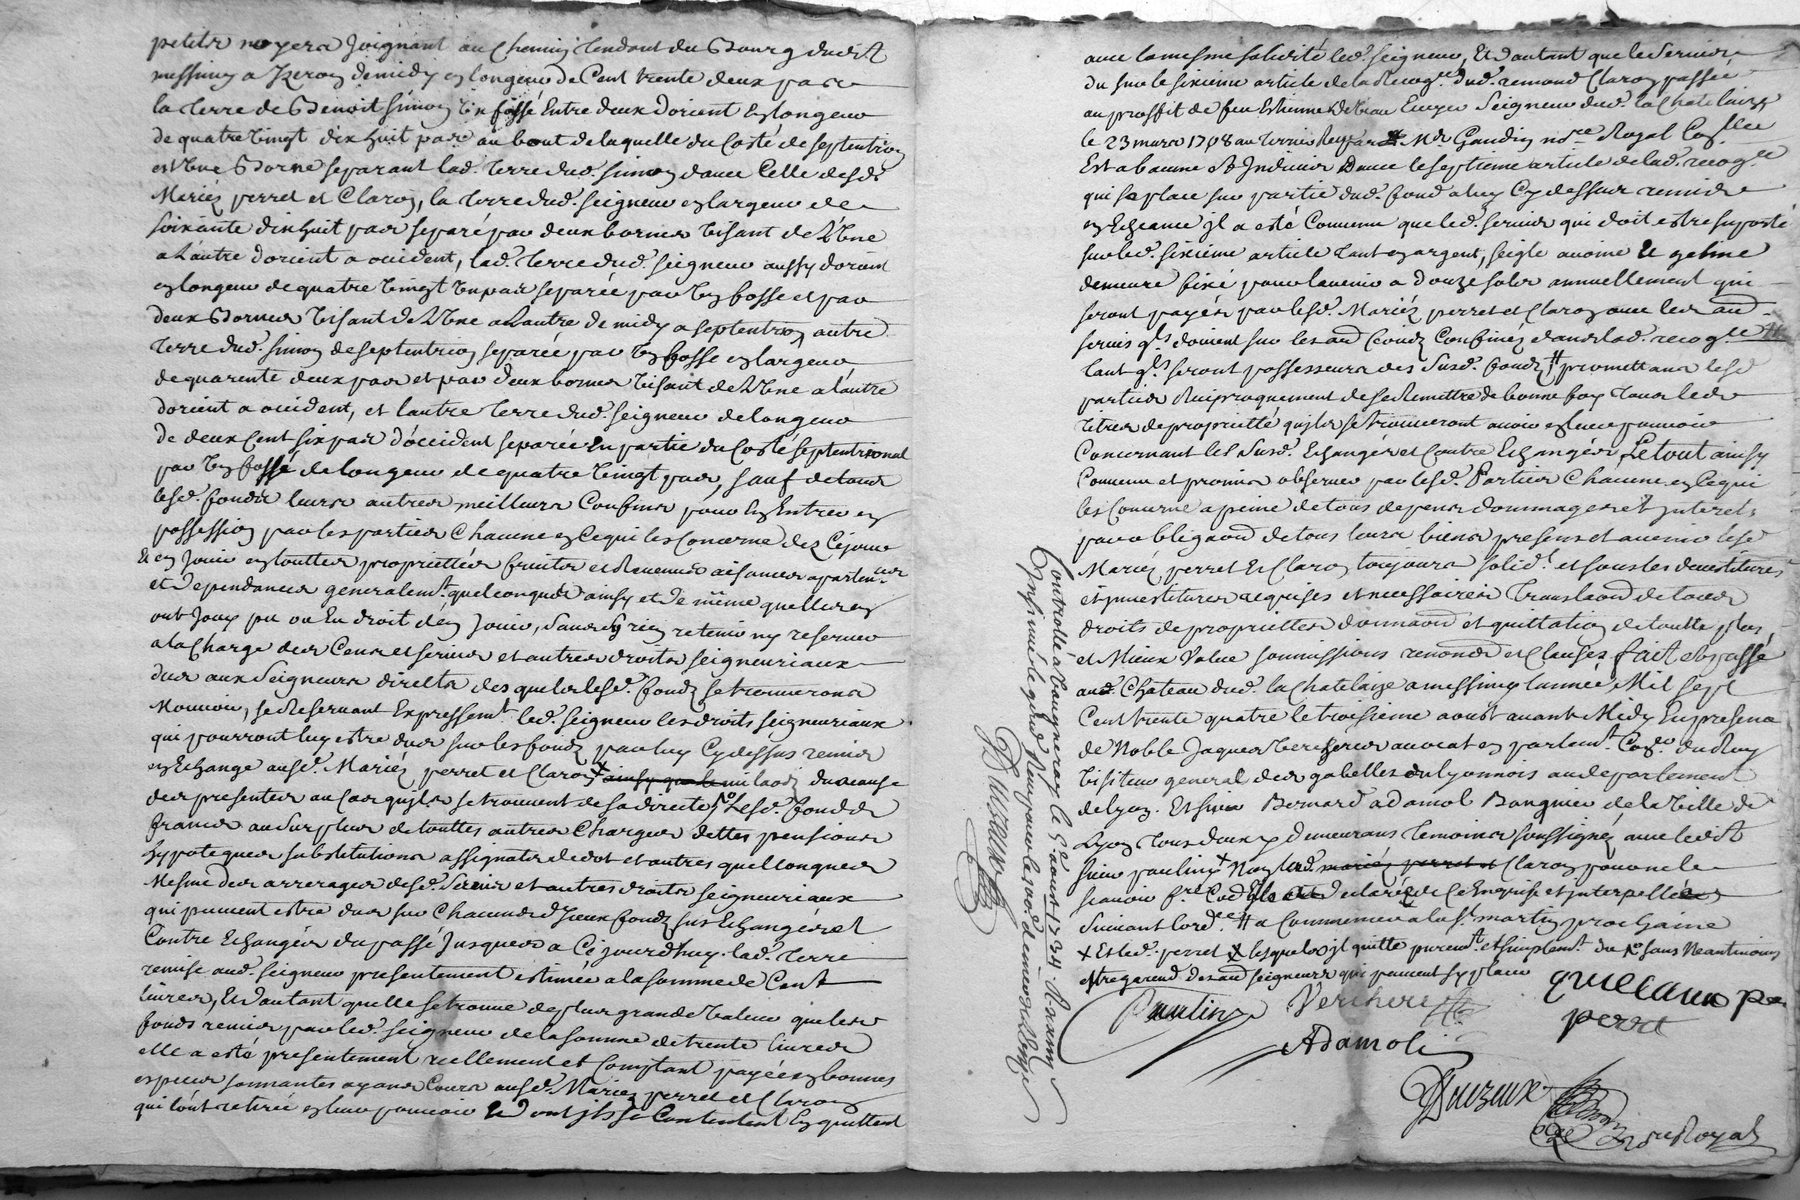 petits noyers Joignant au Chemin tendant du Bourg dudit
messimy a Izeron de midy en longeur de Cent trente deux pas
la terre de Benoit Simon un fossé Entre deux dorient en longeur
de quatre vingt dix huit pas au bout de laquelle du Costé de septentrion
est une Borne separant lad. terre dud. Simon dauec Celle desd.
Mariés perret et Claron, la terre dud. seigneur en largeur de
soixante dix huit pas separé par deux bornes visant de L'une
a L'autre dorient a occident, lad. terre dud. seigneur aussy dorient
en longeur de quatre vingt un pas separée par un fosse et par
deux Bornes visant de L'une a Lautre de midy a septentrion autre
terre dud. simon de septentrion separée par un fosse en largeur
de quarente deux pas et par deux bornes visant de L'une a Lautre
dorient a occident, et lautre terre dud. seigneur de longeur
de deux Cent six pas d'occident separée En partie du Costé septentrional
par un fossé de longeur de quatre vingt pas, sauf de tous
lesd. fonds leurs autres meilleurs Confins pour En Entrer en
possession par les parties Chacune en Ce qui les Concerne dez Cejourd
& en Jouir en touttes proprietés fruits et Revenus aisances apartenances
et dependances generalemt. quelconques ainsy et de même quelles en
ont Jouy pu ou Eu droit d'en Jouir, sans y rien retenir ny reserver
a la Charge des Cens et servis et autres droits seigneuriaux
dus aux Seigneurs directs des quels lesd. fonds se trouveront
Mouvoir, se Reservant Expressemt. led. seigneur les droits seigneuriaux
qui pourront luy estre dus sur les fonds par luy Cy dessus remis
en Echange ausd. Mariés perret et Claron milaods du Change
des presentes au Cas quils se trouvent de sa directe, Lesd. fonds
francs au surplus de touttes autres Charges dettes pensions
hypoteques substitutions assignats de dot et autres quelconques
Mesme des arrerages desd. Servis et autres droits seigneuriaux
qui peuvent estre dus sur Chacun d'yceux fonds sus Echangés et
Contre Echangés du passé Jusques a Cejourdhuy. lad. terre
remise aud. seigneur presentement estimée a la somme de Cent
livres, Et d'autant quelle se trouve de plus grande valeur que les
fonds remis par led. seigneur de la somme de trente livres
elle a esté presentement reellement et Comptant payée en bonnes
especes sonnantes ayans Cours ausd. Mariés perret et Claron
qui l'ont retirée en leur pouvoir Et dont ils se Contentent En quittent
auec la mesme solidité led. seigneur, Et d'autant que le Servis
du sur le sixieme article de la Recogce. dud. remond Claron passée
au proffit de feu Estienne Ecuyer Seigneur dud. la Chatelaize
le 23 mars 1708 au terrier Reçu par Mr. Gaudin nore. Royal
Est a baume & Indivis Dauec le septieme article de lad. recogce.
qui se place sur partie dud. fond a luy Cy dessus remis
en Echeance il a esté Convenu que led. servis qui doit estre suporté
sur led. sixieme article tant en argent, seigle avoine & geline
demeure fixé pour lavenir a douze sols annuellement qui
seront payés par lesd. Mariés perret et Claron auec les aud.
servis qls. doivent sur les aud. fonds Confinés dans lad. recogce. #
tant qls. seront possesseurs des susd. fonds # promettans lesd.
parties Reciproquement de se Remettre de bonne foy tous les
titres de proprietté quils se trouveront avoir en leur pouvoir
Concernant les susd. Echangés et Contre Echangés, Le tout ainsy
Convenu et promis observer par lesd. Parties Chacune en Ce qui
les Concerne a peine de tous depens dommages et Interets
par obligaon. de tous leurs biens presens et avenir lesd.
Mariés perret Et Claron toujours solidt. et sous les devestitures
et investitures requises et necessaires translaon. de tous
droits de proprietter donnaon. et quittation de toutte plus
et Mieux Value soumissions renonces et Clauses fait et passé
aud. Chateau dud. la Chatelaize a messimy lannée Mil sept
Cent trente quatre le troisieme aoust avant Midy En presence
de Noble Jaques Vercheres avocat en parlemt. Coner. du Roy
visiteur general des gabelles du lyonnois au departement
de lyon. Et sieur Bernard adamol Banquier de la ville de
Lyon tous deux y demeurans temoins soussignés auec ledit
sieur paulin + Non lad. mariés perret et Claron pour ne le
scavoir decelaré de Ce Enquise et interpellée
Suivant lorde. # a Commencer a la St. martin prochaine
+ Et led. perret + lesquels il quitte puremt. et simplemt. du ps. sans Neantmoins
Controllé a Vaugneray le 5e. aoust 1734. Receu
Insinué le
Duzeux
Paulin
Verchere
guillaume pe
perret
Adamoli
Duzeux
Royal